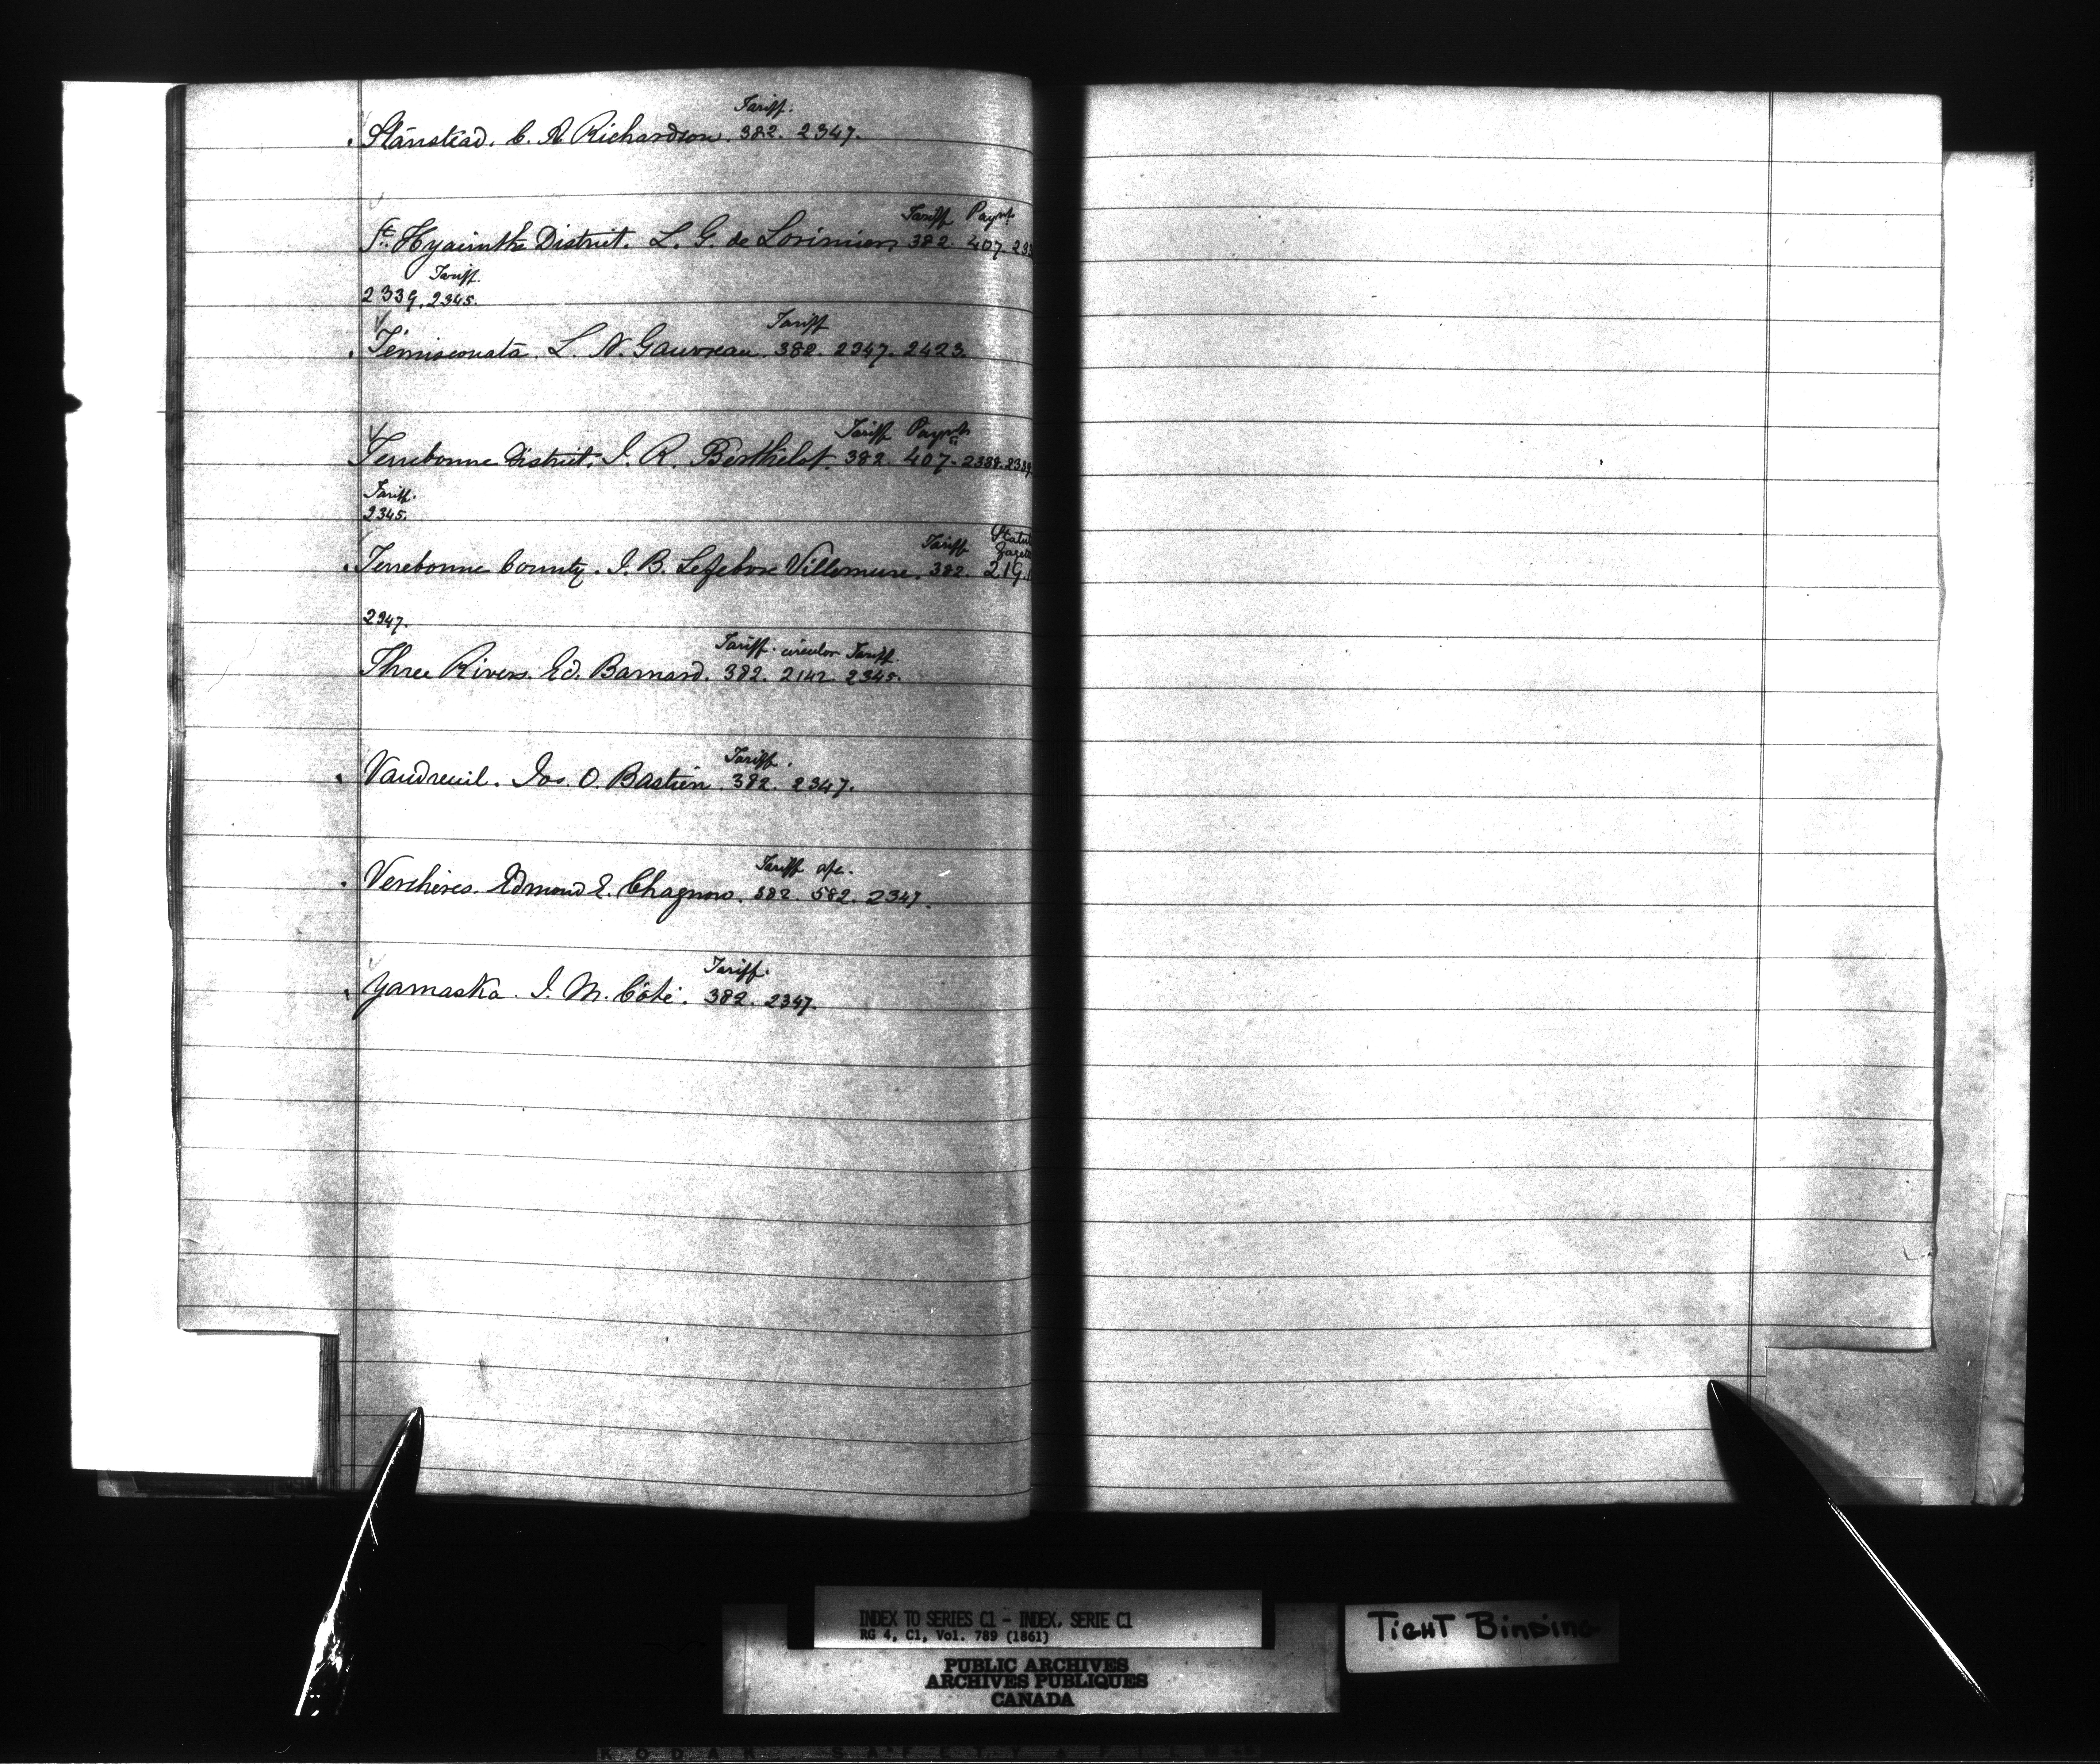 Tariff.
Stanstead. C. A. Richardson. 382. 2347.
Tariff Paymt
St. Hyacinthe District. L. G. de Lorimier 382. 407. 233
Tariff.
2339. 2345.
Tariff
Témiscouata. L. N. Gauvreau. 382. 2347. 2423.
Tariff Paymts
Terrebonne District. J. R. Berthelot. 382. 407. 2338. 2339
Tariff.
2345.
Tariff Statu Gazette
Terrebonne County. J. B. Lefebvre Villemure. 382. 219.
2347.
Tariff. circular Tariff.
Three Rivers. Ed. Barnard. 382. 2142. 2345.
Tariff.
Vaudreuil. Jos. O. Bastien. 382. 2347.
Tariff a/c.
Verchères. Edmond E. Chagnon. 382. 582. 2347.
Tariff.
Yamaska. J. M. Côté. 382. 2347.
INDEX TO SERIES C1 - INDEX, SERIE C1
RG 4, C1, Vol. 789 (1861)
PUBLIC ARCHIVES
ARCHIVES PUBLIQUES
CANADA
TIGHT BINDING
KODAK SAFETY FILM